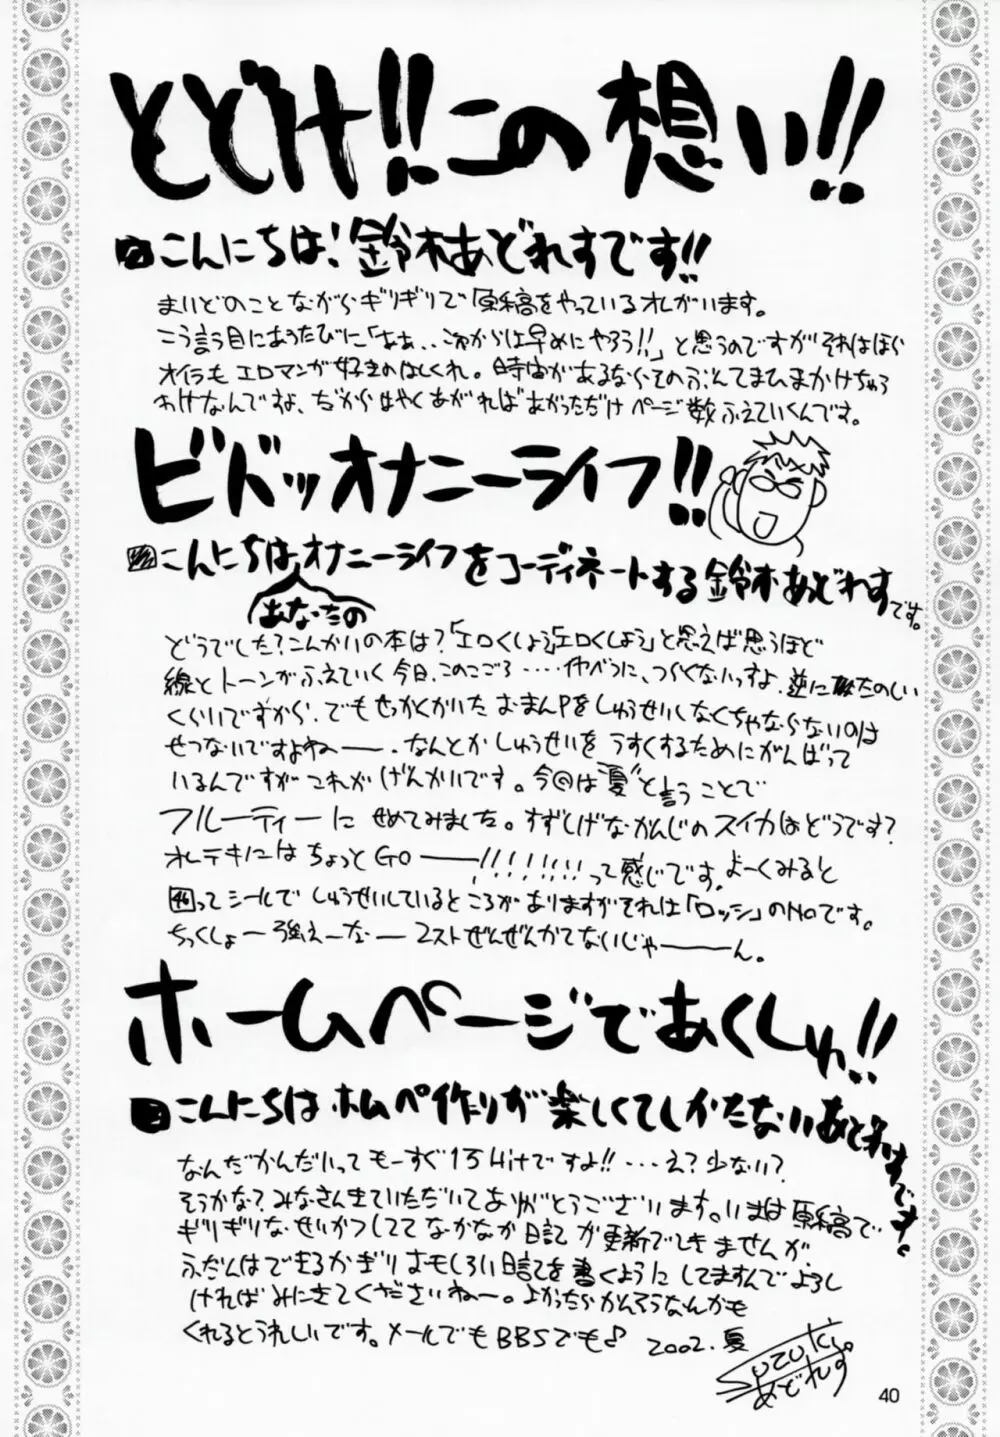 とどけ!!この想い!!
こんにちは!鈴木あどれすです!!
まいどのことながらギリギリで原稿をやっているオレがいます。
こう言う目にあうたびに「ああ..これからは早めにやろう!!」と思うのですがそれはほら
オイラもエロマンガ好きのはしくれ。時間があるならそのぶんてまひまかけちゃう
わけなんですよ、だからはやくあがればあがっただけページ数ふえていくんです。
ビバッオナニーライフ!!
こんにちはオナニーライフをコーディネートする鈴木あどれすです。
あなたの
どうでした?こんかいの本は?「エロくしよう エロくしよう」と思えば思うほど
線とトーンがふえていく今日、このごろ‥‥仲べうに、つらくないっすよ、逆にたのしい
くらいですから、でもせっかくかいたおまんPをしゅうせいしなくちゃならないのは
せつないですよねー。なんとかしゅうせいをうすくするためにがんばって
いるんですがこれがげんかいです。今回は"夏"と言うことで
フルーティーにせめてみました。すずしげなかんじのスイカはどうです?
オレテキにはちょっとGO――!!!!!!!!って感じです。よーくみると
46ってシールでしゅうせいしているところがありますがそれは「ロッシ」のNoです。
ちっくしょー強えーなー 2ストぜんぜんかてないじゃーーん。
ホームページであくしゅ!!
こんにちはホムペ作りが楽しくてしかたないあどれすです。
なんだかんだいってもーすぐ15Hitですよ!!‥‥え?少ない?
そうかな?みなさんきていただいてありがとうございます。いまは原稿で
ギリギリなせいかつしててなかなか日記が更新できませんが、
ふだんはできるかぎりおもしろい日記を書くようにしてますんでよろし
ければみにきてくださいねー。よかったらかんそうなんかも
くれるとうれしいです。メールでもBBSでも♪ 2002.夏
Suzuki
あどれす
40